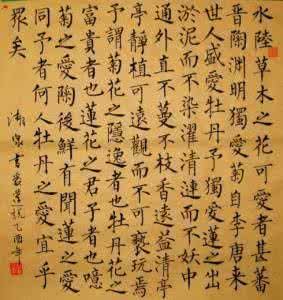 水陸草木之花可愛者甚蕃
晉陶淵明獨愛菊自李唐來
世人盛愛牡丹予獨愛蓮之出
淤泥而不染濯清漣而不妖中
通外直不蔓不枝香遠益清亭
亭靜植可遠觀而不可褻玩焉
予謂菊花之隱逸者也牡丹花之
富貴者也蓮花之君子者也噫
菊之愛陶後鮮有聞蓮之愛
同予者何人牡丹之愛宜乎
眾矣
書 乙酉年